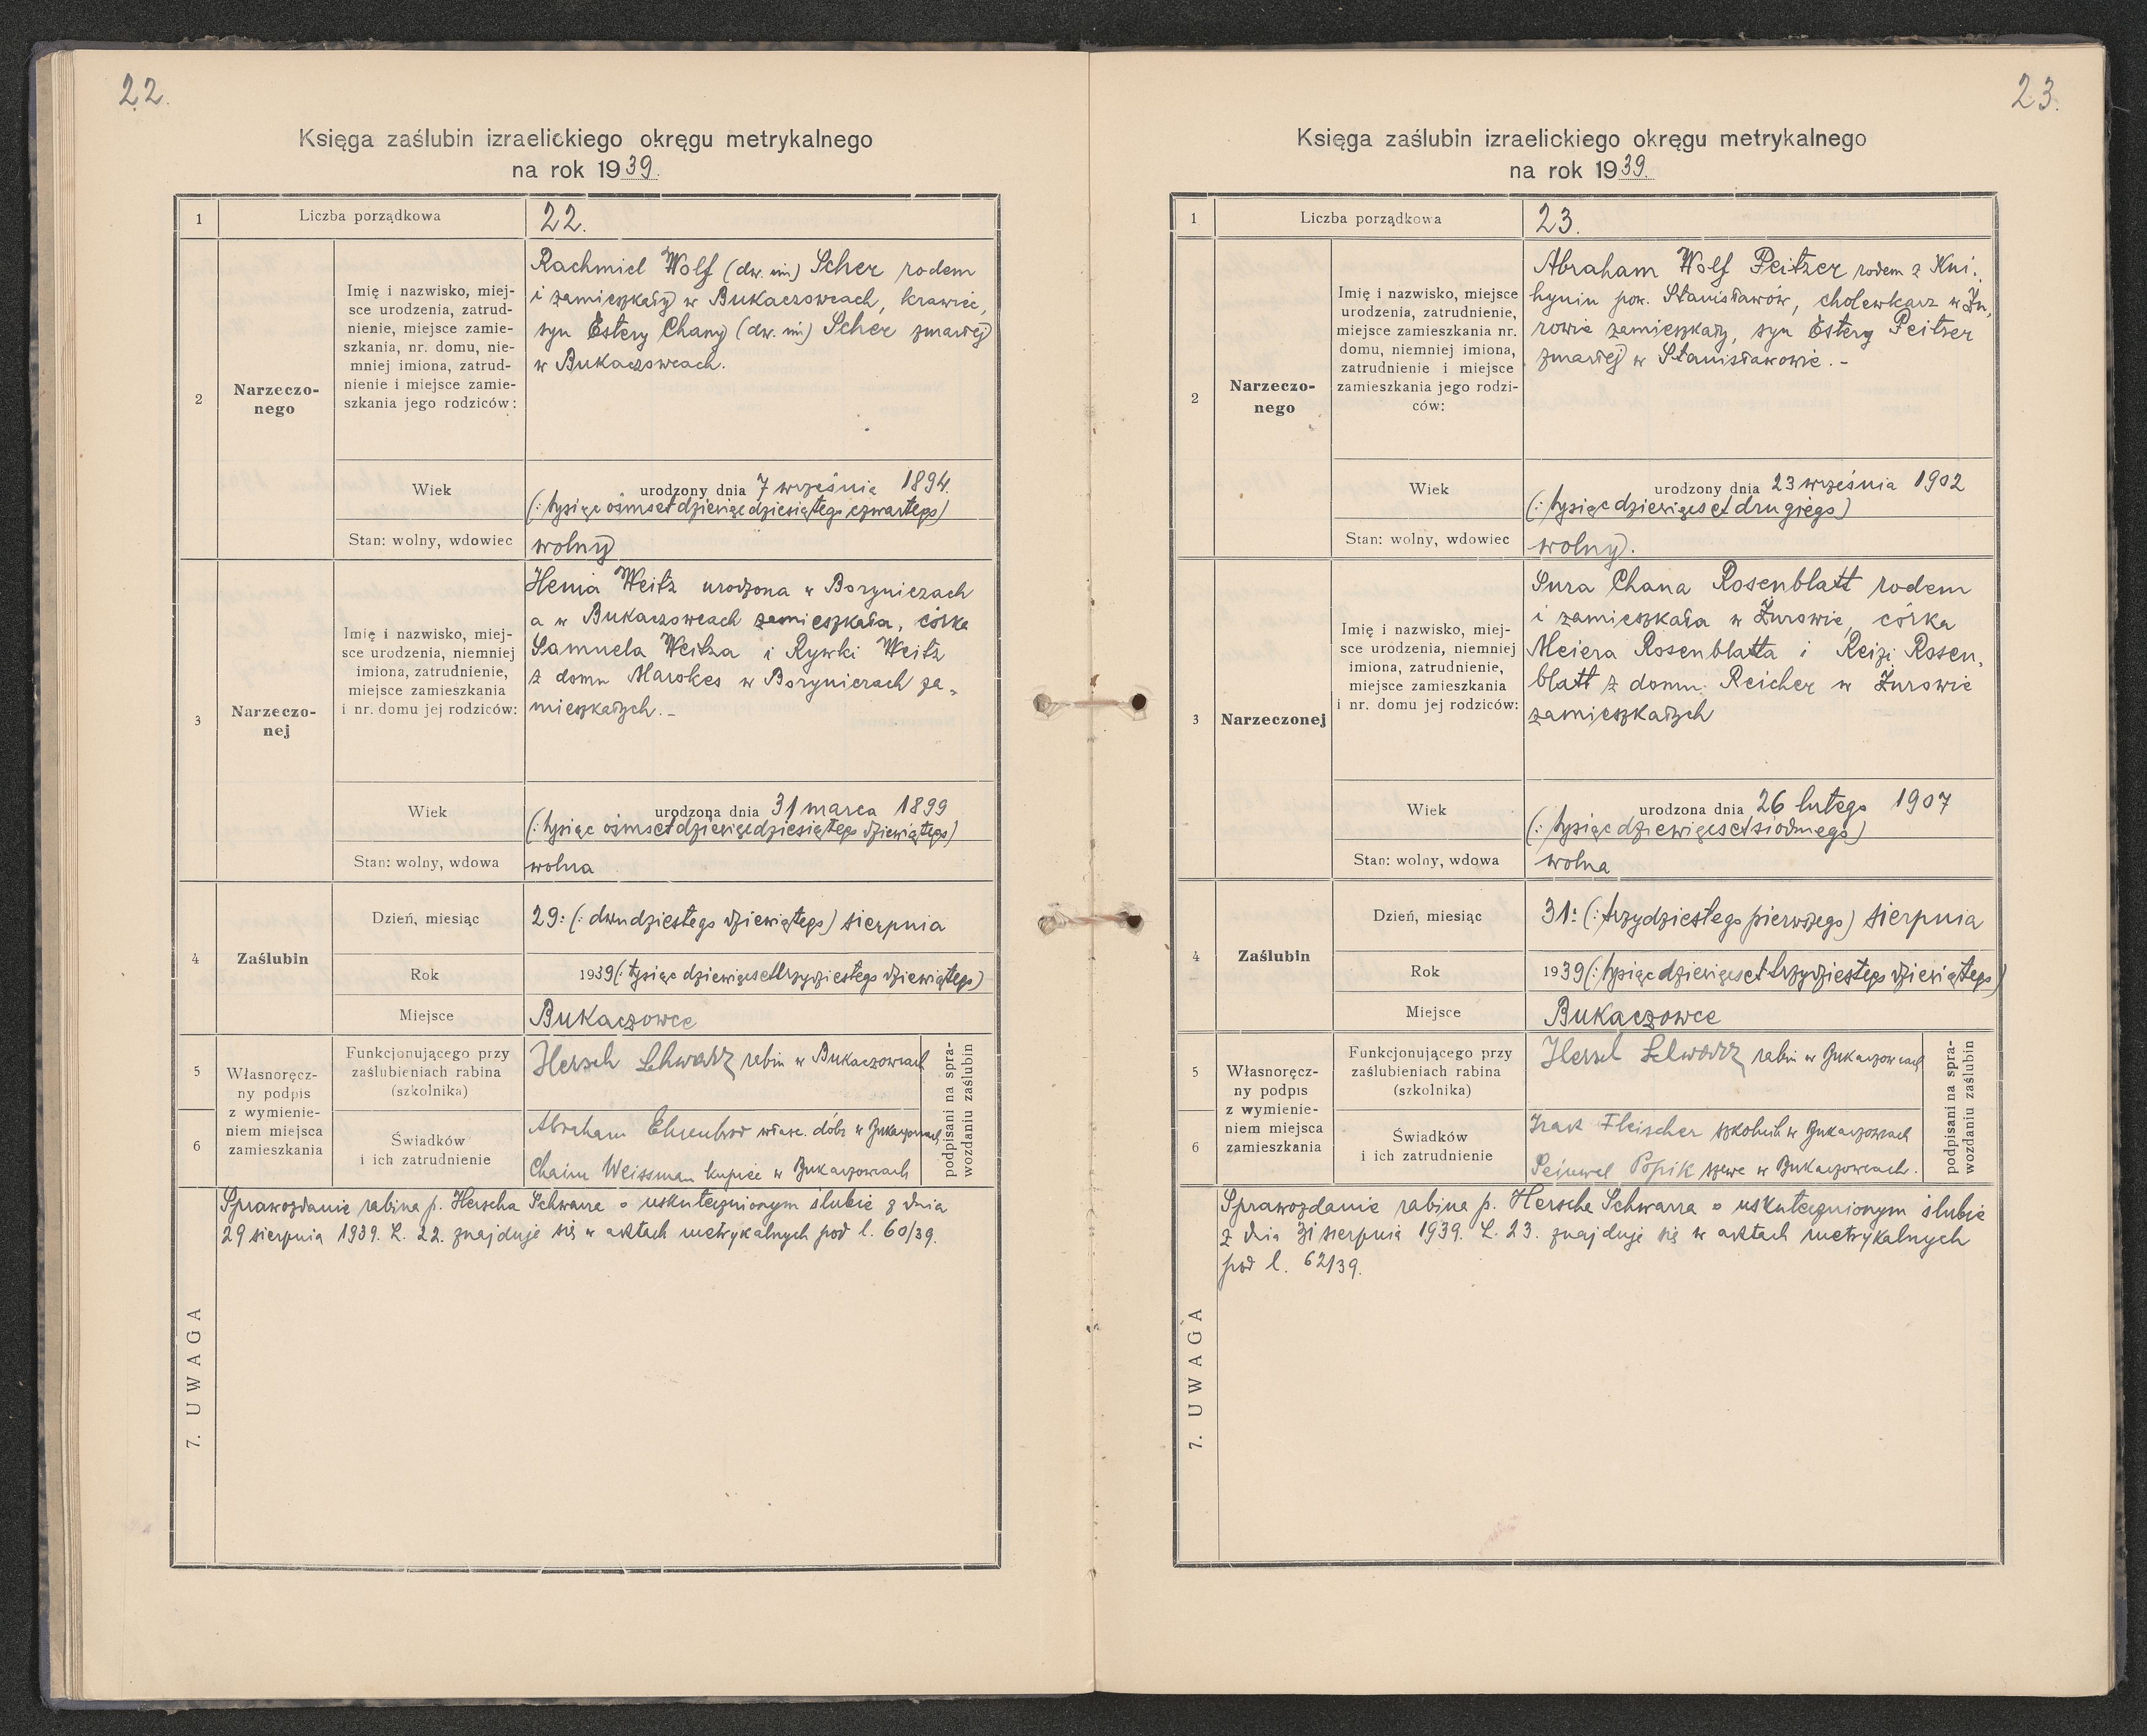 22.
Księga zaślubin izraelickiego okręgu metrykalnego
na rok 1939.
1
Liczba porządkowa
22.
2
Narzeczo-
nego
Imię i nazwisko, miej-
sce urodzenia, zatrud-
nienie, miejsce zamie-
szkania, nr. domu, nie-
mniej imiona, zatrud-
nienie i miejsce zamie-
szkania jego rodziców:
Rachmiel Wolf (dw. im) Scher rodem
i zamieszkały w Bukaczowcach, krawiec,
syn Estery Chany (dw. im) Scher zmarłej
w Bukaczowcach.
Wiek
urodzony dnia 7 września 1894.
(: tysiąc ośmset dziewięćdziesiątego czwartego)
Stan: wolny, wdowiec
wolny
3
Narzeczo-
nej
Imię i nazwisko, miej-
sce urodzenia, niemniej
imiona, zatrudnienie,
miejsce zamieszkania
i nr. domu jej rodziców:
Henia Weitz urodzona w Boryniczach
a w Bukaczowcach zamieszkała, córka
Samuela Weitza i Rywki Weitz
z domu Marokes w Boryniczach za-
mieszkałych.-
Wiek
urodzona dnia 31 marca 1899
(: tysiąc ośmset dziewięćdziesiątego dziewiątego)
Stan: wolny, wdowa
wolna
4
Zaślubin
Dzień, miesiąc
29: (: dwudziestego dziewiątego) sierpnia
Rok
1939 (: tysiąc dziewięćset trzydziestego dziewiątego)
Miejsce
Bukaczowce
5
6
Własnoręcz-
ny podpis
z wymienie-
niem miejsca
zamieszkania
Funkcjonującego przy
zaślubieniach rabina
(szkolnika)
Hersch Schwarz rabin w Bukaczowcach
Świadków
i ich zatrudnienie
Abraham właśc. dóbr w Bukaczowcach
Chaim Weissman kupiec w Bukaczowcach
podpisani na spra-
wozdaniu zaślubin
7. UWAGA
Sprawozdanie rabina p. Herscha Schwarza o uskutecznionym ślubie z dnia
29 sierpnia 1939. L. 22. znajduje się w aktach metrykalnych pod l. 60/39.
23.
Księga zaślubin izraelickiego okręgu metrykalnego
na rok 1939.
1
Liczba porządkowa
23.
2
Narzeczo-
nego
Imię i nazwisko, miejsce
urodzenia, zatrudnienie,
miejsce zamieszkania nr.
domu, niemniej imiona,
zatrudnienie i miejsce
zamieszkania jego rodzi-
ców:
Abraham Wolf Peitzer rodem z Kni-
hynin pow. Stanisławów, cholewkarz w Żu-
rowie zamieszkały, syn Estery Peitzer
zmarłej w Stanisławowie.-
Wiek
urodzony dnia 23 września 1902
(: tysiąc dziewięćset drugiego)
Stan: wolny, wdowiec
wolny.
3
Narzeczonej
Imię i nazwisko, miej-
sce urodzenia, niemniej
imiona, zatrudnienie,
miejsce zamieszkania
i nr. domu jej rodziców:
Sura Chana Rosenblatt rodem
i zamieszkała w Żurowie, córka
Meiera Rosenblatta i Reizi Rosen-
blatt z domu Reicher w Żurowie
zamieszkałych
Wiek
urodzona dnia 26 lutego 1907
(: tysiąc dziewięćset siódmego)
Stan: wolny, wdowa
wolna
4
Zaślubin
Dzień, miesiąc
31: (: trzydziestego pierwszego) sierpnia
Rok
1939 (: tysiąc dziewięćset trzydziestego dziewiątego)
Miejsce
Bukaczowce
5
6
Własnoręcz-
ny podpis
z wymienie-
niem miejsca
zamieszkania
Funkcjonującego przy
zaślubieniach rabina
(szkolnika)
Hersch Schwarz rabin w Bukaczowcach
Świadków
i ich zatrudnienie
Izak Fleischer szkolnik w Bukaczowcach
Popik szewc w Bukaczowcach.
podpisani na spra-
wozdaniu zaślubin
7. UWAGA
Sprawozdanie rabina p. Herscha Schwarza o uskutecznionym ślubie
z dnia 31 sierpnia 1939. L. 23. znajduje się w aktach metrykalnych
pod l. 62/39.